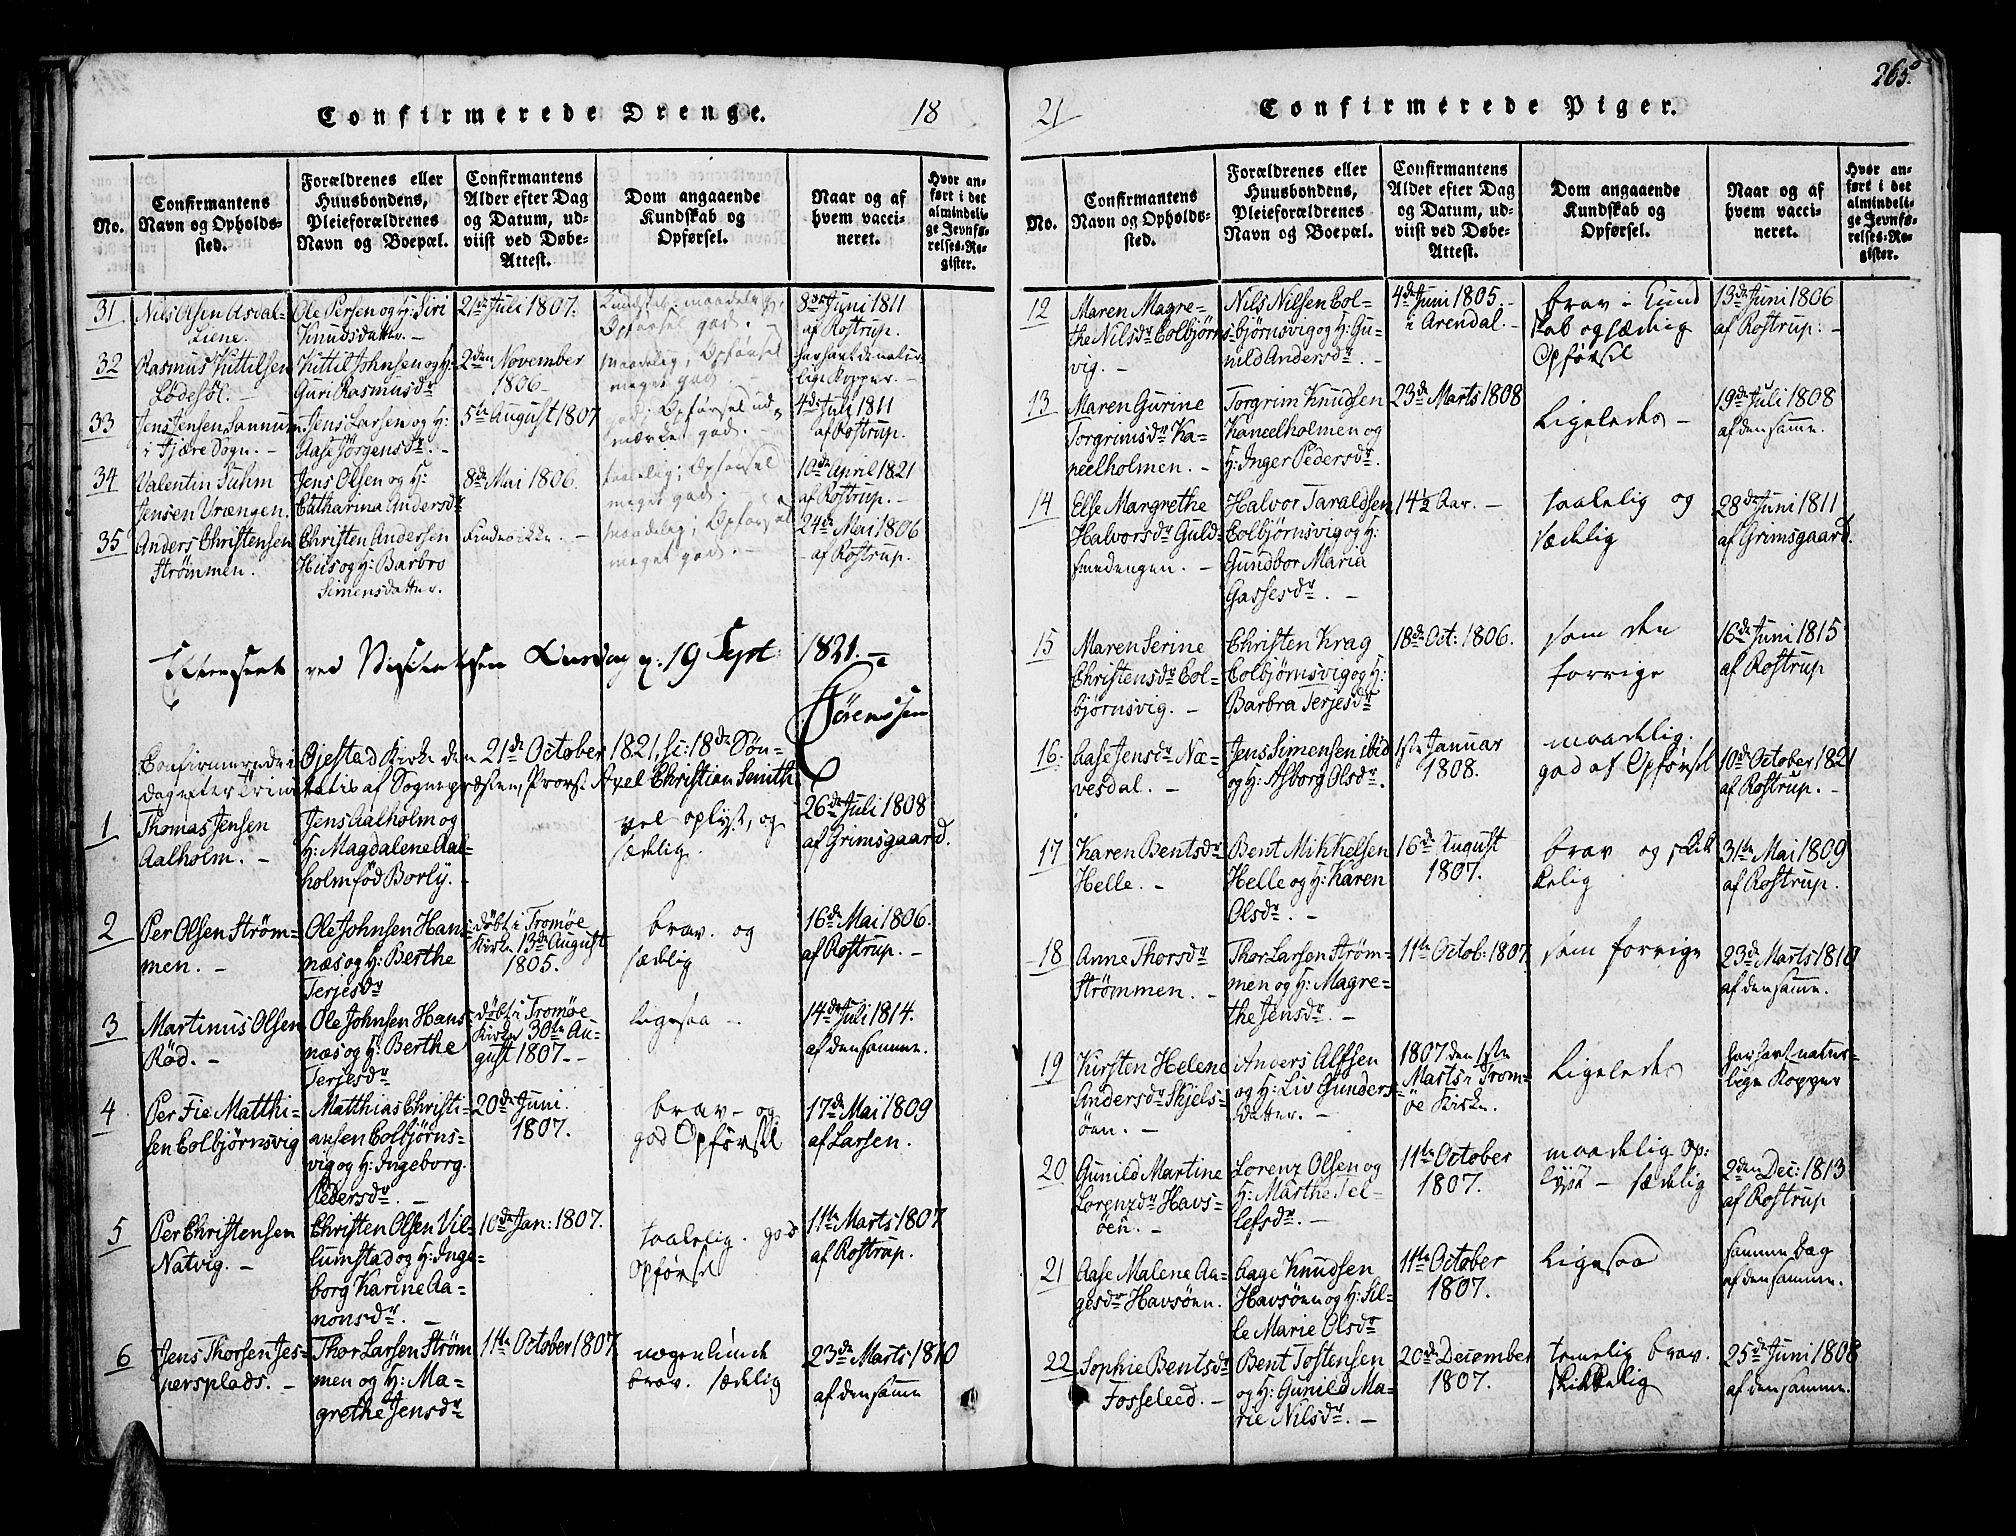 Confirmerede Drenge.
18
No.
Confirmantens
Navn og Opholds-
sted.
Forældrenes eller
Huusbondens,
Pleieforældrenes
Navn og Boepæl.
Confirmantens
Alder efter Dag
og Datum, ud-
viist ved Døbe-
Attest.
Dom angaaende
Kundskab og
Opførsel.
Naar og af
hvem vacci-
neret.
Hvor an-
ført i det
almindeli-
ge Jevnfø-
relses-Re-
gister.
31
Nils Olsen Asdal-
Liene.
Ole Persen og H: Siri
Knudsdatter.
21de Juli 1807.
Kundsk: maadel:
Opførsel god. -
8de Juni 1811
af Rostrup.
32
Rasmus Kittilsen
Lødesøl. -
Kittil Johnsen og H:
Guri Rasmusdr
2den November
1806 -
maadelig; Opførsel
meget god.
har havt de natur-
lige Kopper. -
33
Jens Jensen Sannum
i Fjære Sogn. -
Jens Larsen og H:
Aase Jørgensdr. -
5te August 1807
god; Opførsel ud-
mærket god. -
4de Juli 1811
af Rostrup.
34
Valentin Fuhm
Jensen Vrængen.
Jens Olsen og H:
Catharina Andersdr
8de Mai 1806.
taalelig; Opførsel
meget god. -
10de April 1821
af Rostrup. -
35
Anders Christensen
Strømmen.
Christen Andersen
Hiis og H: Barbro
Simensdatter.
Findes ikke. -
maadelig; Opførsel
meget god. -
24de Mai 1806
af Rostrup.
Efterseet ved Visitatsen Onsdag d. 19 Sept 1821. -
Sørenssen
Confirmerede i Øjestad Kirke den 21de October 1821, si: 18de Søn-
dag efter Trinitatis af Sognepræsten, Provst Axel Christian Smith.
1
Thomas Jensen
Aalholm. -
Jens Aalholm og
H: Magdalene Aal-
holm fød Borly. -
vel oplyst, og
sædelig.
26de Juli 1808
af Grimsgaard.
2
Per Olsen Strøm-
men. -
Ole Johnsen Hans-
næs og H: Berthe
Terjesdr
døbt i Tromøe
Kirke 13de August
1805.
brav. og
sædelig
16de Mai 1806.
af Rostrup. -
3
Martinus Olsen
Rød. -
Ole Johnsen Hans-
næs og H: Berthe
Terjesdr
døbt i Tromøe-
Kirke 30te Au-
gust 1807. -
ligesaa -
14de Juli 1814.
af densamme.
4
Per Fie Matthi-
sen Colbjørnsvig
Matthias Christi-
ansen Colbjørns-
vig og H: Ingeborg
Pedersdr. -
20de Juni
1807.
brav - og
god Opførsel
17de Mai 1809
af Larsen.
5
Per Christensen
Natvig. -
Christen Olsen Vil-
lumstad og H: Inge-
borg Karine Aa-
nonsdr. -
10de Jan: 1807.
taalelig. god
Opførsel
11te Marts 1807
af Rostrup.
6
Jens Thorsen Jes-
persplads. -
Thor Larsen Strøm
men og H: Ma-
grethe Jensdr
11te October 1807
nogenlunde
brav. sædelig
23de Marts 1810
af densamme
21
Confirmerede Piger.
265.
No.
Confirmantens
Navn og Opholds-
sted.
Forældrenes eller
Huusbondens,
Pleieforældrenes
Navn og Boepæl.
Confirmantens
Alder efter Dag
og Datum, ud-
viist ved Døbe-
Attest.
Dom angaaende
Kundskab og
Opførsel.
Naar og af
hvem vacci-
neret.
Hvor an-
ført i det
almindeli-
ge Jevnfø-
relses-Re-
gister.
12
Maren Magre-
the Nilsdr Colbjørns-
vig. -
Nils Nilsen Col-
bjørnsvig og H: Gu-
nild Andersdr. -
4de Juni 1805. -
i Arendal. -
brav i Kund
skab og sædelig
Opførsel
13de Juni 1806
af Rostrup: -
13
Maren Gurine
Torgrimsdr Ka-
neelholmen. -
Torgrim Knudsen
Kaneelholmen og
H: Inger Pedersdr.
23de Marts 1808
Ligeledes -
19de Juli 1808
af densamme.
14
Else Margrethe
Halvorsdr Guld-
smedengen. -
Halvor Taraldsen
Colbjørnsvig og H:
Gundbor Maria
Gassesdr. -
14½ Aar. -
taalelig og
sædelig
28de Juni 1811
af Grimsgaard.
15
Maren Serine
Christensdr Col-
bjørnsvig. -
Christen Krag
Colbjørnsvig og H:
Barbra Terjesdr
18de Oct: 1806.
som den
forrige
16de Juni 1815
af Rostrup
16.
Aase Jensdr Næ-
vesdal. -
Jens Simensen ibid
og H: Asborg Olsdr.
1ste Januar
1808.
maadelig.
god af Opførsel
10de October 1821
af Rostrup. -
17
Karen Bentsdr
Helle. -
Bent Mikkelsen
Helle og H: Karen
Olsdr. -
16de August
1807.
brav og skik
kelig
31te Mai 1809
af Rostrup.
18
Anne Thorsdr
Strømmen. -
Thor Larsen Strøm-
men og H: Magre-
the Jensdr. -
11te Octob: 1807.
som forrige
23de Marts 1810
af densamme.
19
Kirsten Helene
Andersdr Skjels-
öen. -
Anders Alfsen
og H: Liv Gunders-
datter. -
1807 den 1ste
Marts i Trom-
öe Kirke.
Ligeledes
har havt natur-
lige Kopper
20
Gunild Martine
Lorenzdr Havs-
öen. -
Lorenz Olsen og
H: Marthe Tel-
lefsdr. -
11te October
1807.
maadelig op-
lyst - sædelig
2den Dec: 1813
af Rostrup
21
Aase Malene Aa-
gesdr Havsöen.
Aage Knudsen
Havsöen og H: Sil-
le Marie Olsdr
11te October
1807.
Ligesaa
samme Dag
af densamme.
22
Sophie Bentsdr
Fosseleed. -
Bent Tostensen
og H: Gunild Ma-
rie Nilsdr. -
20de December
1807.
temelig brav.
skikkelig
25de Juni 1808
af densamme.